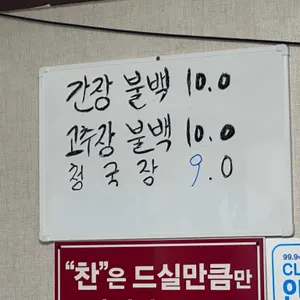 간장 불백 10.0
고추장 불백 10.0
청국장 9.0
“찬”은 드실만큼만
99.9
CL